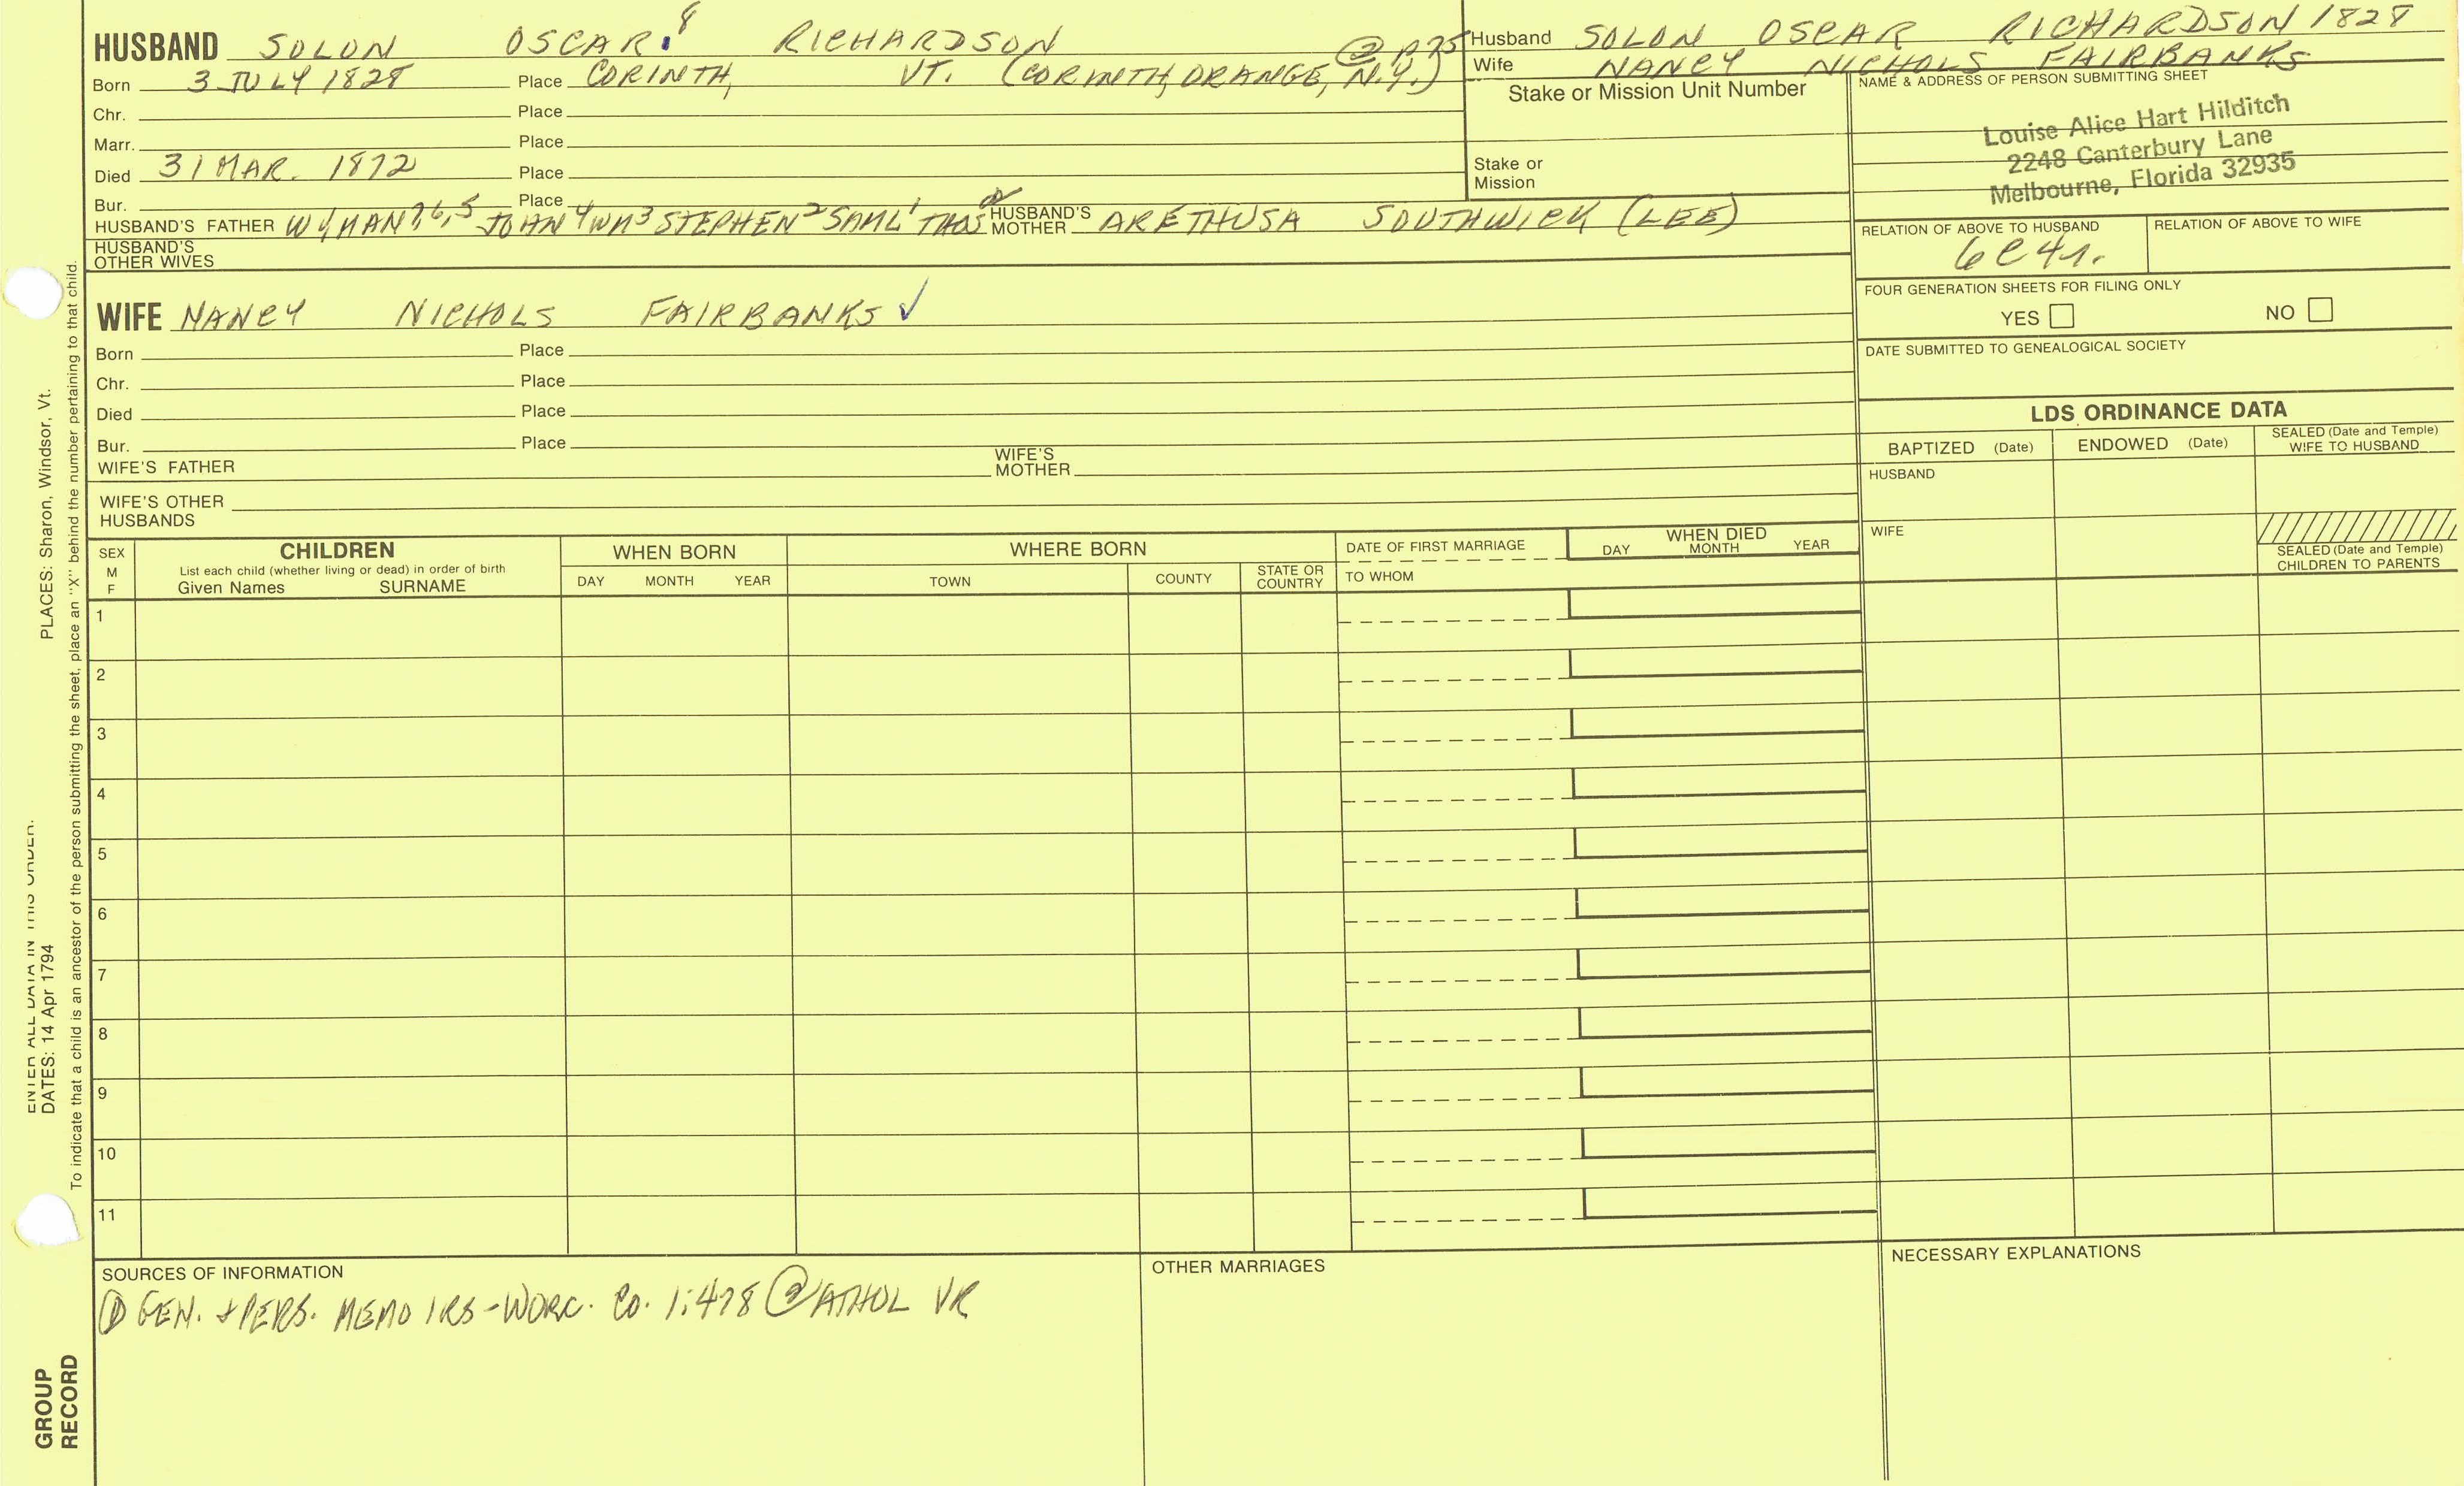 HUSBAND SOLON OSCAR 8 RICHARDSON
Born 3 JULY 1828 Place CORINTH, VT. (CORINTH, ORANGE, N.Y.) @ p75
Chr. Place
Marr. Place
Died 31 MAR. 1872 Place
Bur. Place
HUSBAND'S FATHER WYMAN 7 6,5 JOHN 4 WM 3 STEPHEN 2 SAML 1 THOS HUSBAND'S MOTHER ARETHUSA SOUTHWICK (LEE)
HUSBAND'S OTHER WIVES
Husband SOLON OSCAR RICHARDSON 1828
Wife NANCY NICHOLS FAIRBANKS
Stake or Mission Unit Number
Stake or
Mission
NAME & ADDRESS OF PERSON SUBMITTING SHEET
Louise Alice Hart Hilditch
2248 Canterbury Lane
Melbourne, Florida 32935
RELATION OF ABOVE TO HUSBAND RELATION OF ABOVE TO WIFE
6C4r.
FOUR GENERATION SHEETS FOR FILING ONLY
YES NO
DATE SUBMITTED TO GENEALOGICAL SOCIETY
WIFE NANCY NICHOLS FAIRBANKS ✓
Born Place
Chr. Place
Died Place
Bur. Place
WIFE'S FATHER WIFE'S MOTHER
WIFE'S OTHER
HUSBANDS
LDS ORDINANCE DATA
BAPTIZED (Date) ENDOWED (Date) SEALED (Date and Temple) WIFE TO HUSBAND
HUSBAND
WIFE
SEALED (Date and Temple)
CHILDREN TO PARENTS
SEX M F
CHILDREN
List each child (whether living or dead) in order of birth
Given Names SURNAME
WHEN BORN
DAY MONTH YEAR
WHERE BORN
TOWN COUNTY STATE OR COUNTRY
DATE OF FIRST MARRIAGE
TO WHOM
WHEN DIED
DAY MONTH YEAR
1
2
3
4
5
6
7
8
9
10
11
SOURCES OF INFORMATION
① GEN. + PERS. MEMOIRS - WORC. Co. 1:478 ② ATHOL VR
OTHER MARRIAGES
NECESSARY EXPLANATIONS
ENTER ALL DATA IN THIS ORDER:
DATES: 14 Apr 1794 PLACES: Sharon, Windsor, Vt.
To indicate that a child is an ancestor of the person submitting the sheet, place an "X" behind the number pertaining to that child.
GROUP
RECORD